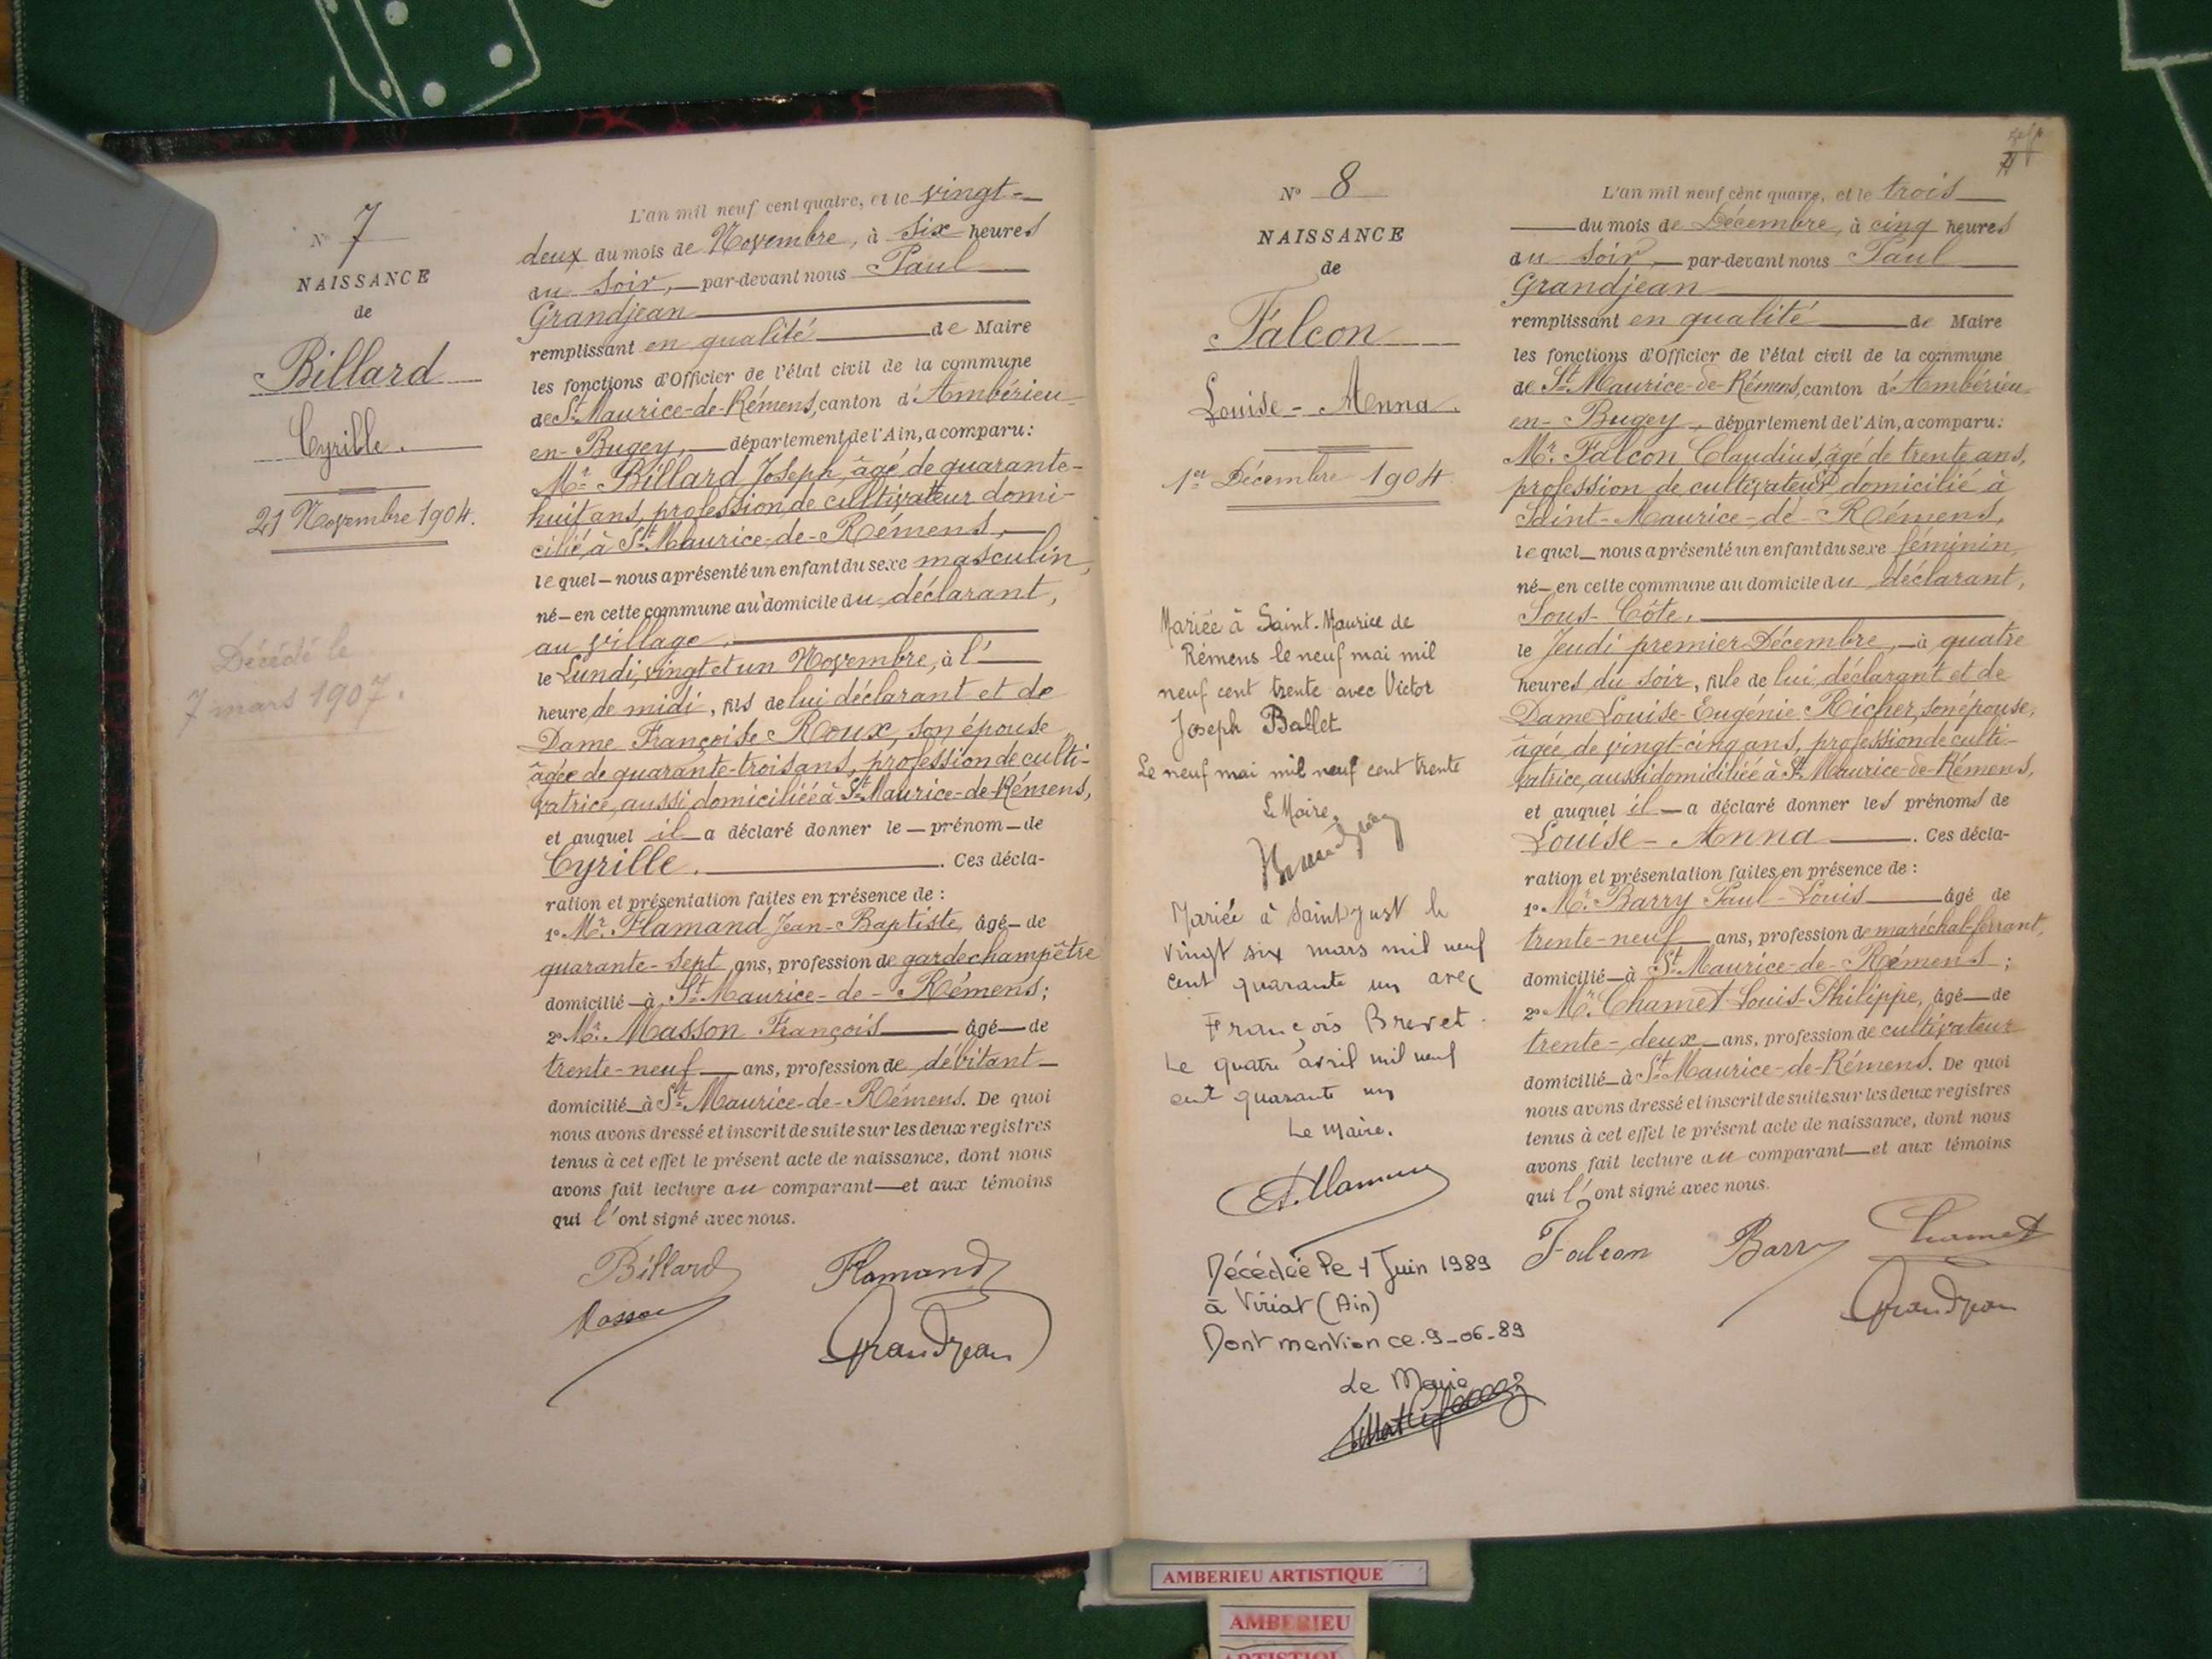 N° 7
NAISSANCE
de
Billard
Cyrille.
21 Novembre 1904.
Décédé le
7 mars 1907.
L'an mil neuf cent quatre, et le vingt-
deux du mois de Novembre, à six heures
du soir, par-devant nous Paul
Grandjean
remplissant en qualité de Maire
les fonctions d'Officier de l'état civil de la commune
de St Maurice-de-Rémens, canton d'Ambérieu-
en-Bugey, département de l'Ain, a comparu:
Mr. Billard Joseph, âgé de quarante-
huit ans, profession de cultivateur domi-
cilié à St Maurice-de-Rémens,
lequel nous a présenté un enfant du sexe masculin,
né en cette commune au domicile du déclarant,
au village,
le Lundi, vingt et un Novembre, à l'
heure de midi, fils de lui déclarant et de
Dame Françoise Roux, son épouse
âgée de quarante-trois ans, profession de culti-
vatrice, aussi domiciliée à St Maurice-de-Rémens,
et auquel il a déclaré donner le prénom de
Cyrille. Ces décla-
ration et présentation faites en présence de:
1° Mr. Flamand Jean-Baptiste, âgé de
quarante-sept ans, profession de garde champêtre
domicilié à St Maurice-de-Rémens;
2° Mr. Masson François âgé de
trente-neuf ans, profession de débitant
domicilié à St Maurice-de-Rémens. De quoi
nous avons dressé et inscrit de suite sur les deux registres
tenus à cet effet le présent acte de naissance, dont nous
avons fait lecture au comparant et aux témoins
qui l'ont signé avec nous.
Billard Flamand
Masson Grandjean
N° 8
NAISSANCE
de
Falcon
Louise-Anna.
1er Décembre 1904
Mariée à Saint-Maurice de
Rémens le neuf mai mil
neuf cent trente avec Victor
Joseph Ballet
Le neuf mai mil neuf cent trente
Le Maire,
Mariée à Saint Just le
vingt six mars mil neuf
cent quarante un avec
François Brevet.
Le quatre avril mil neuf
cent quarante un
Le Maire.
Décédée le 4 Juin 1989
à Viriat (Ain)
Dont mention ce. 9-06-89
Le Maire
L'an mil neuf cent quatre, et le trois
du mois de Décembre, à cinq heures
du soir, par-devant nous Paul
Grandjean
remplissant en qualité de Maire
les fonctions d'Officier de l'état civil de la commune
de St Maurice-de-Rémens, canton d'Ambérieu
en-Bugey, département de l'Ain, a comparu:
Mr. Falcon Claudius, âgé de trente ans,
profession de cultivateur, domicilié à
Saint-Maurice-de-Rémens,
lequel nous a présenté un enfant du sexe féminin,
né en cette commune au domicile du déclarant,
Sous-Côte,
le Jeudi premier Décembre, à quatre
heures du soir, fille de lui déclarant et de
Dame Louise-Eugénie Richer, son épouse,
âgée de vingt-cinq ans, profession de culti-
vatrice, aussi domiciliée à St Maurice-de-Rémens,
et auquel il a déclaré donner les prénoms de
Louise-Anna. Ces décla-
ration et présentation faites en présence de:
1° Mr. Barry Paul-Louis âgé de
trente-neuf ans, profession de maréchal-ferrant,
domicilié à St Maurice-de-Rémens;
2° Mr. Chamet Louis-Philippe, âgé de
trente-deux ans, profession de cultivateur
domicilié à St Maurice-de-Rémens. De quoi
nous avons dressé et inscrit de suite sur les deux registres
tenus à cet effet le présent acte de naissance, dont nous
avons fait lecture au comparant et aux témoins
qui l'ont signé avec nous.
Falcon Barry Chamet
Grandjean
AMBERIEU ARTISTIQUE
AMBERIEU
ARTISTIQUE